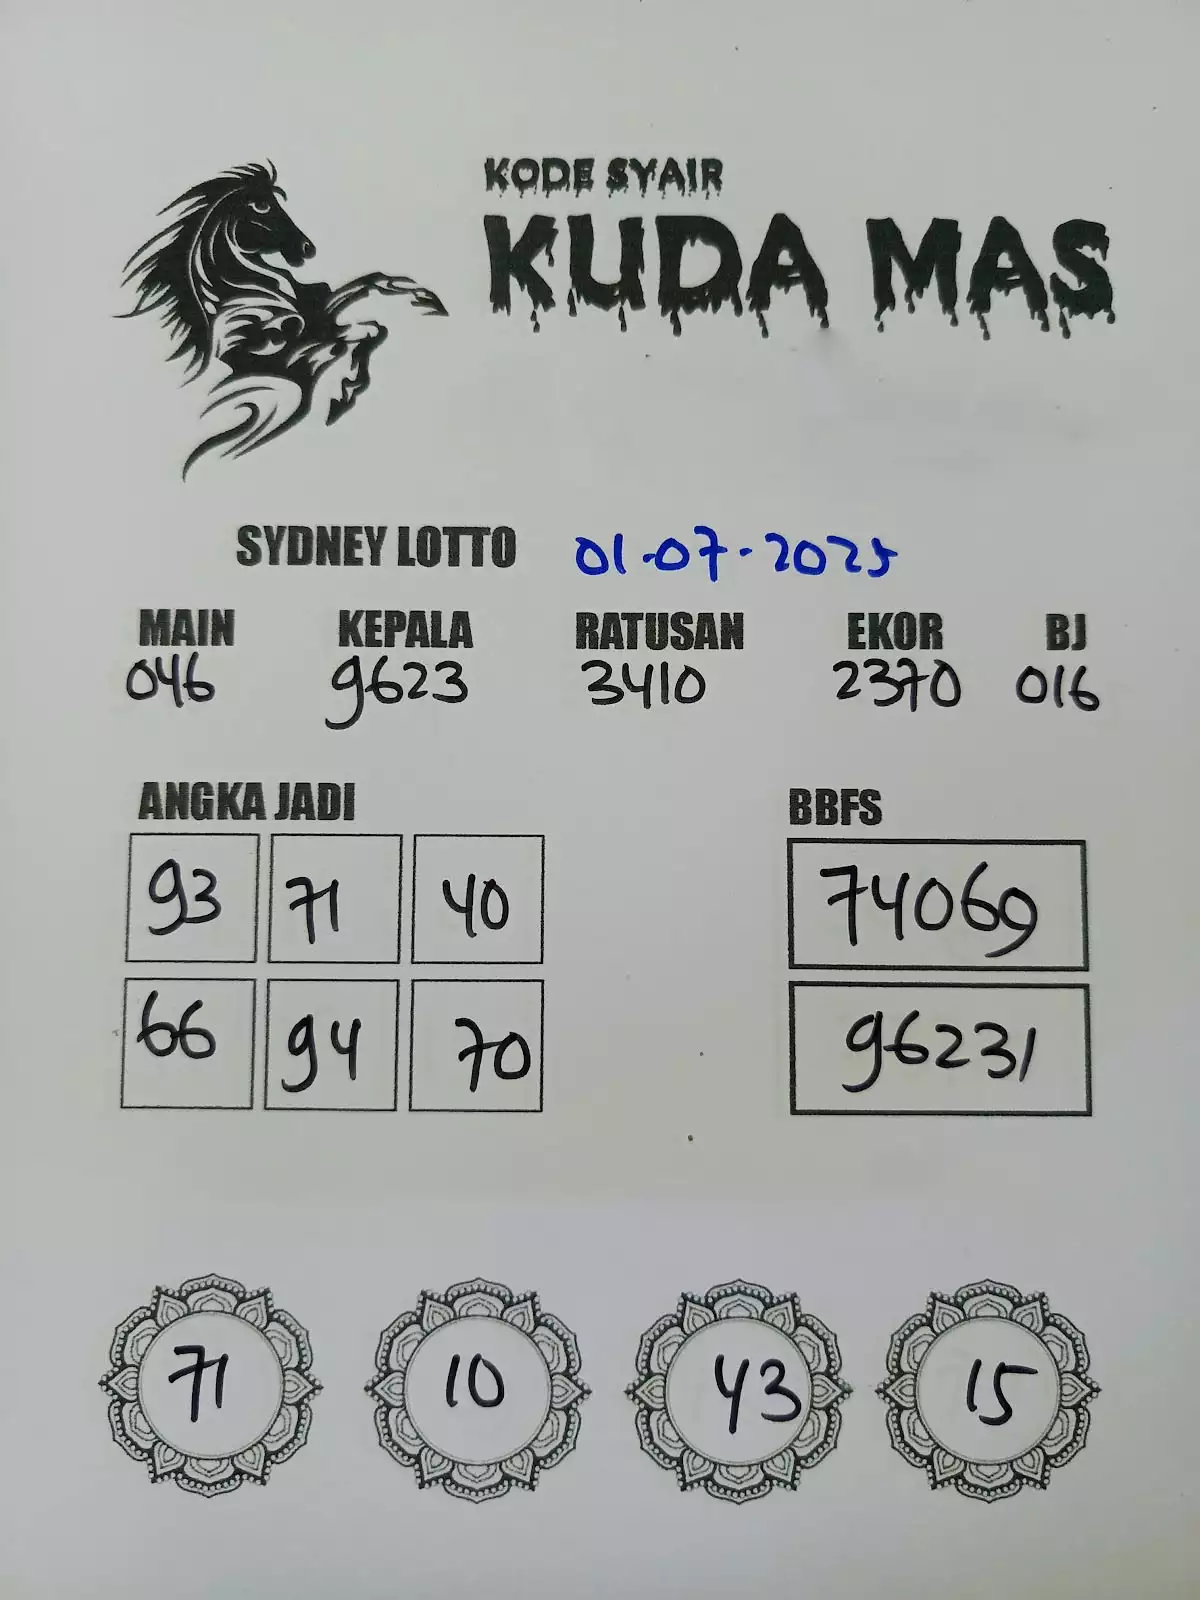 KODE SYAIR
KUDA MAS
SYDNEY LOTTO 01-07-2025
MAIN KEPALA RATUSAN EKOR BJ
046 9623 3410 2370 016
ANGKA JADI BBFS
93 71 40 74069
66 94 70 96231
71 10 43 15